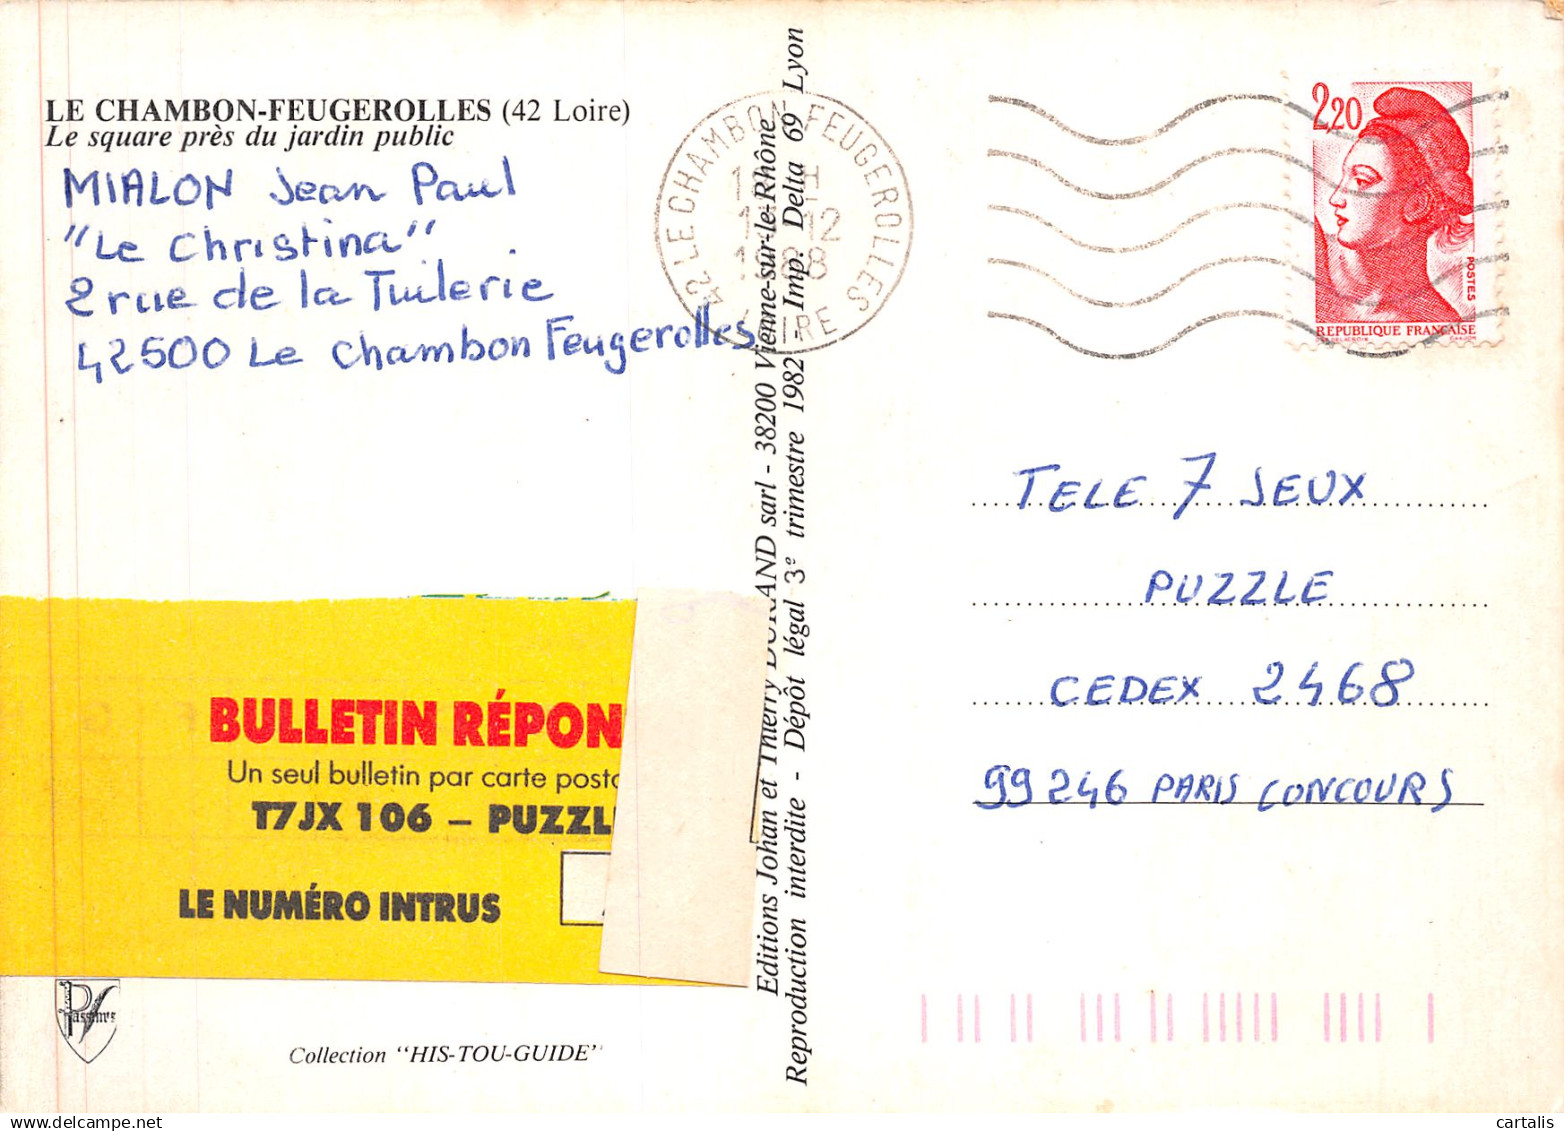 LE CHAMBON-FEUGEROLLES (42 Loire)
Le square près du jardin public
MIALON Jean Paul
"Le Christina"
2 rue de la Tuilerie
42500 Le Chambon Feugerolles
BULLETIN RÉPON
Un seul bulletin par carte posta
T7JX 106 – PUZZL
LE NUMÉRO INTRUS
Collection "HIS-TOU-GUIDE"
Editions Johan et Thierry DURAND sarl - 38200 Vienne-sur-le-Rhône
Reproduction interdite - Dépôt légal 3e trimestre 1982 - Imp. Delta 69 Lyon
42 LE CHAMBON FEUGEROLLES
12
LOIRE
2,20
POSTES
REPUBLIQUE FRANÇAISE
TELE 7 JEUX
PUZZLE
CEDEX 2468
99246 PARIS CONCOURS
cartalis